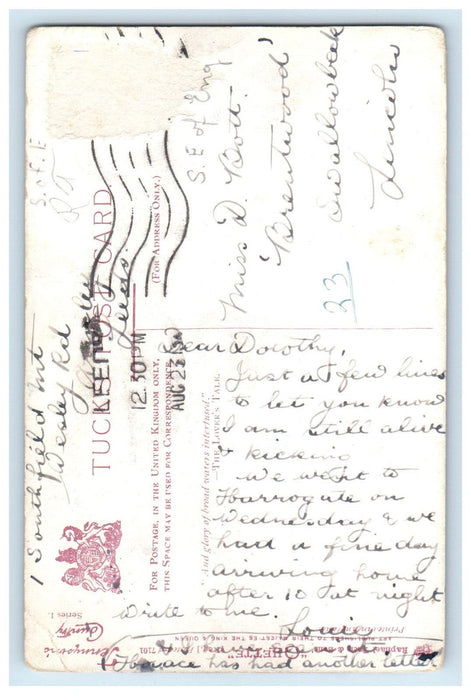 TUCK'S POST CARD.
(FOR ADDRESS ONLY.)
FOR POSTAGE, IN THE UNITED KINGDOM ONLY,
THIS SPACE MAY BE USED FOR CORRESPONDENCE
LEEDS
12.30PM
AUG 23
S.E of Eng
S. of. E
Miss D. Bott.
'Brentwood'
Swallowbeck
Lincoln
23
1 Southfield Mt
Wesley Rd
Leeds.
Dear Dorothy,
Just a few lines
to let you know
I am still alive
& kicking
We went to
Harrogate on
Wednesday & we
had a fine day
arriving home
after 10 at night
Write to me.
Louie
Horace has had another letter
"And glory of broad waters interfused,"
—THE LOVER'S TALE.
Tennyson's
Country
Series I.
ART PUBLISHERS TO THEIR MAJESTIES THE KING & QUEEN